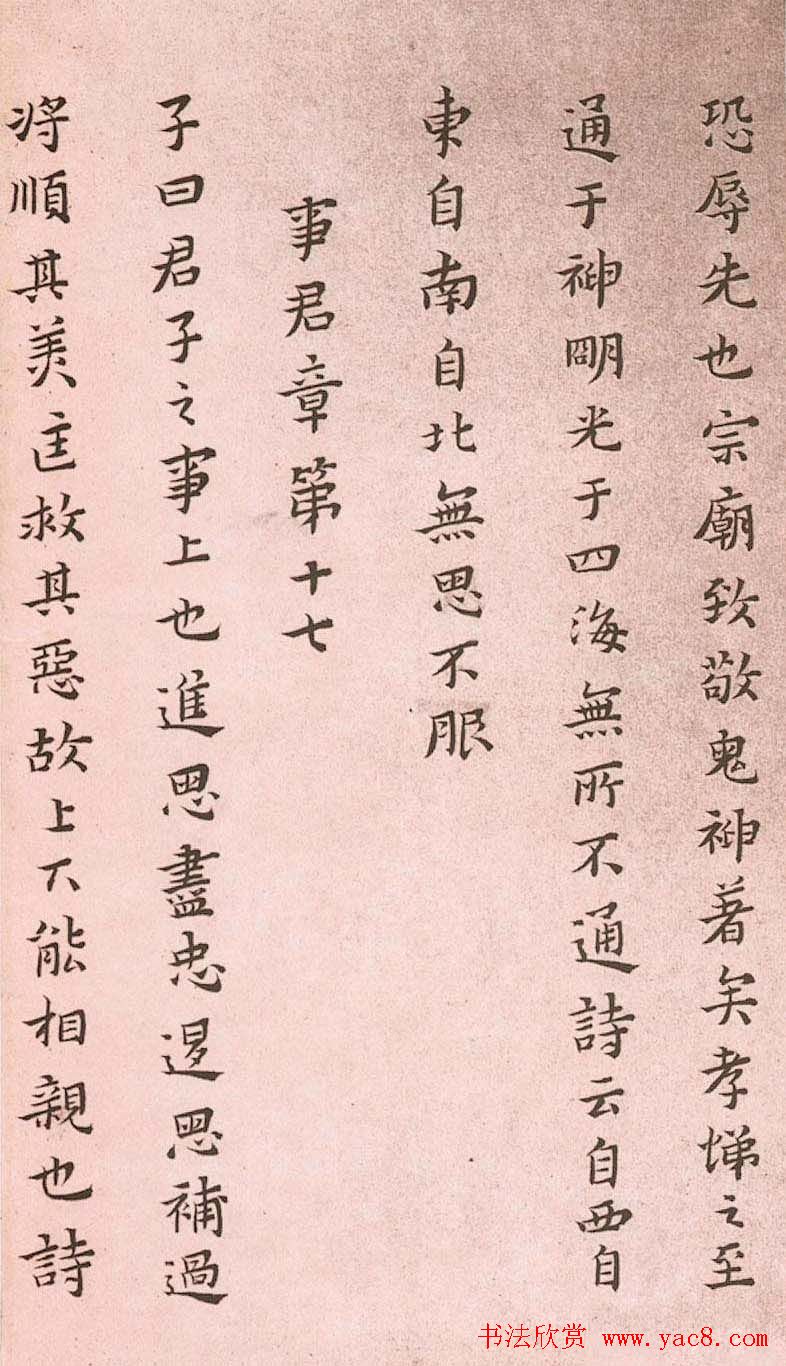 恐辱先也宗廟致敬鬼神著矣孝悌之至
通于神明光于四海無所不通詩云自西自
東自南自北無思不服
事君章第十七
子曰君子之事上也進思盡忠退思補過
将順其美匡救其惡故上下能相親也詩
书法欣赏 www.yac8.com